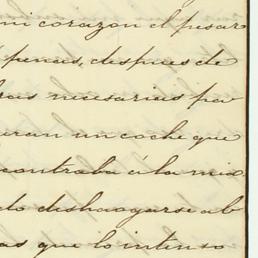 mi corazon el pesar
penas, despues de
ras necesarias pa
uran un coche que
contraba á la mis
elo deshaogarse ab
as que lo intenso